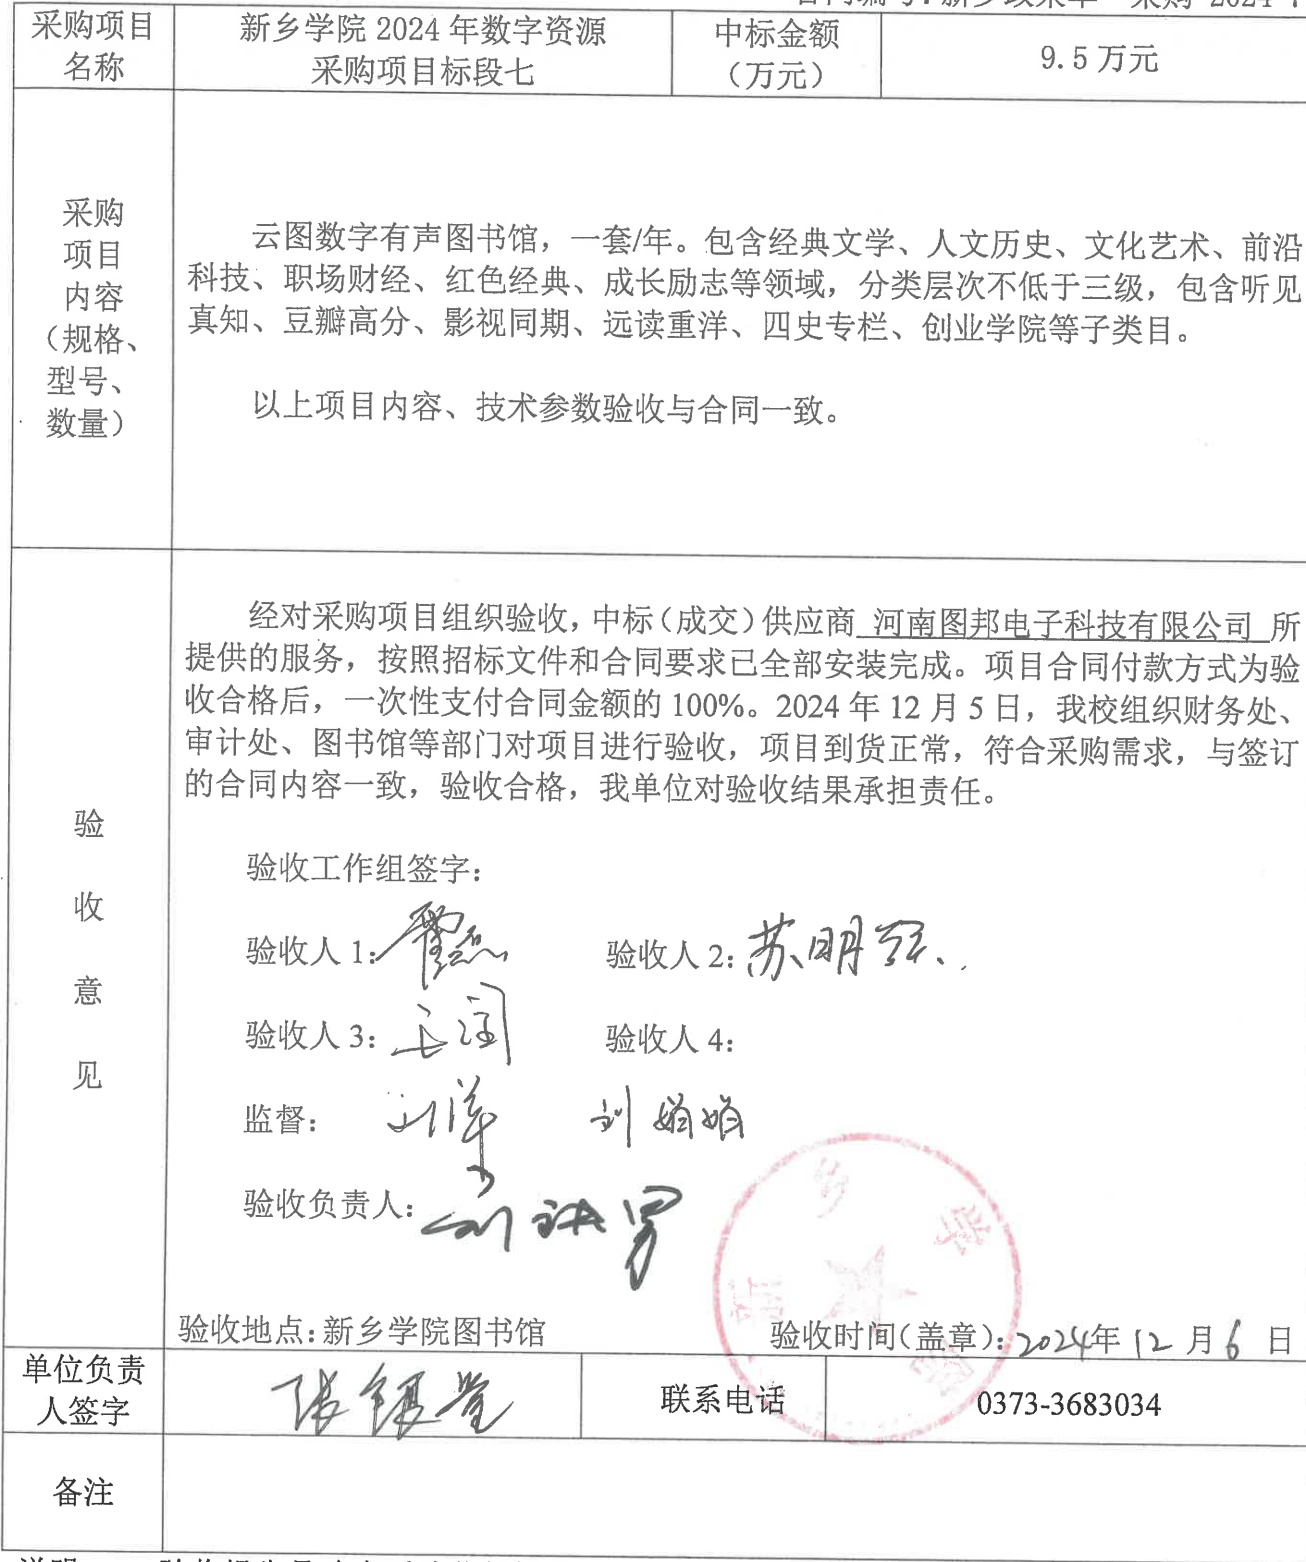 采购项目
名称
新乡学院 2024 年数字资源
采购项目标段七
中标金额
（万元）
9.5 万元
采购
项目
内容
（规格、
型号、
数量）
云图数字有声图书馆，一套/年。包含经典文学、人文历史、文化艺术、前沿
科技、职场财经、红色经典、成长励志等领域，分类层次不低于三级，包含听见
真知、豆瓣高分、影视同期、远读重洋、四史专栏、创业学院等子类目。
以上项目内容、技术参数验收与合同一致。
验
收
意
见
经对采购项目组织验收，中标（成交）供应商 河南图邦电子科技有限公司 所
提供的服务，按照招标文件和合同要求已全部安装完成。项目合同付款方式为验
收合格后，一次性支付合同金额的 100%。2024 年 12 月 5 日，我校组织财务处、
审计处、图书馆等部门对项目进行验收，项目到货正常，符合采购需求，与签订
的合同内容一致，验收合格，我单位对验收结果承担责任。
验收工作组签字：
验收人 1：
验收人 2：苏明
验收人 3：
验收人 4：
监督：
刘娟娟
验收负责人：
验收地点：新乡学院图书馆
验收时间（盖章）：2024年 12 月 6 日
新乡学院
单位负责
人签字
联系电话
0373-3683034
备注